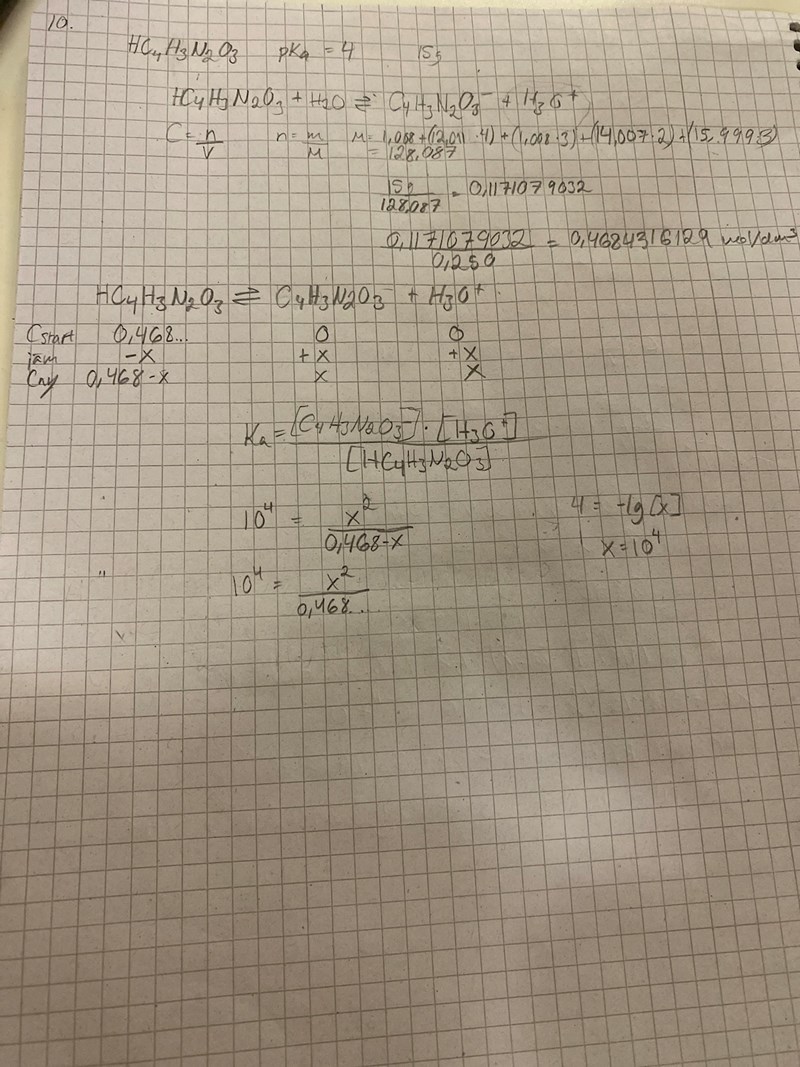 10.
HC4H3N2O3 pKa = 4 15g
HC4H3N2O3 + H2O ⇌ C4H3N2O3⁻ + H3O⁺
C = n/V n = m/M M = 1,008 + (12,011 · 4) + (1,008 · 3) + (14,007 · 2) + (15,999·3)
= 128,087
15g/128,087 = 0,1171079032
0,1171079032/0,250 = 0,4684316129 mol/dm³
HC4H3N2O3 ⇌ C4H3N2O3⁻ + H3O⁺
Cstart 0,468... 0 0
jäm -x +x +x
0,468-x x x
Ka = [C4H3N2O3⁻] · [H3O⁺]/[HC4H3N2O3]
10⁴ = x²/0,468-x 4 = -lg[x]
x = 10⁴
10⁴ = x²/0,468...